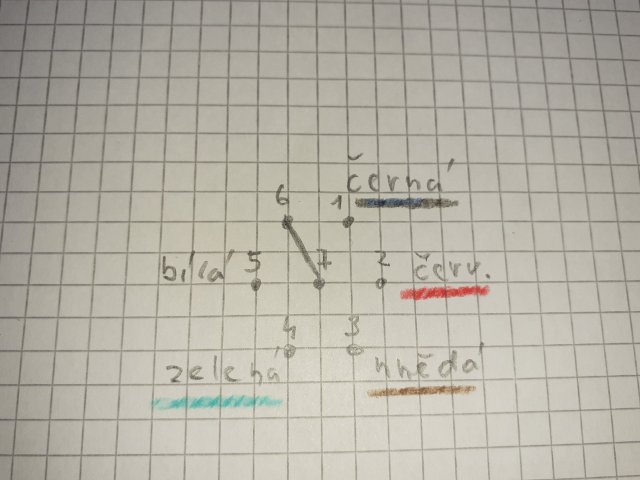 černá
6 1
bílá 5 7 2 červ.
4 3
zelená hnědá